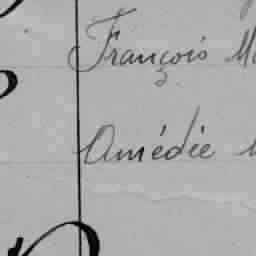 François
Amédée